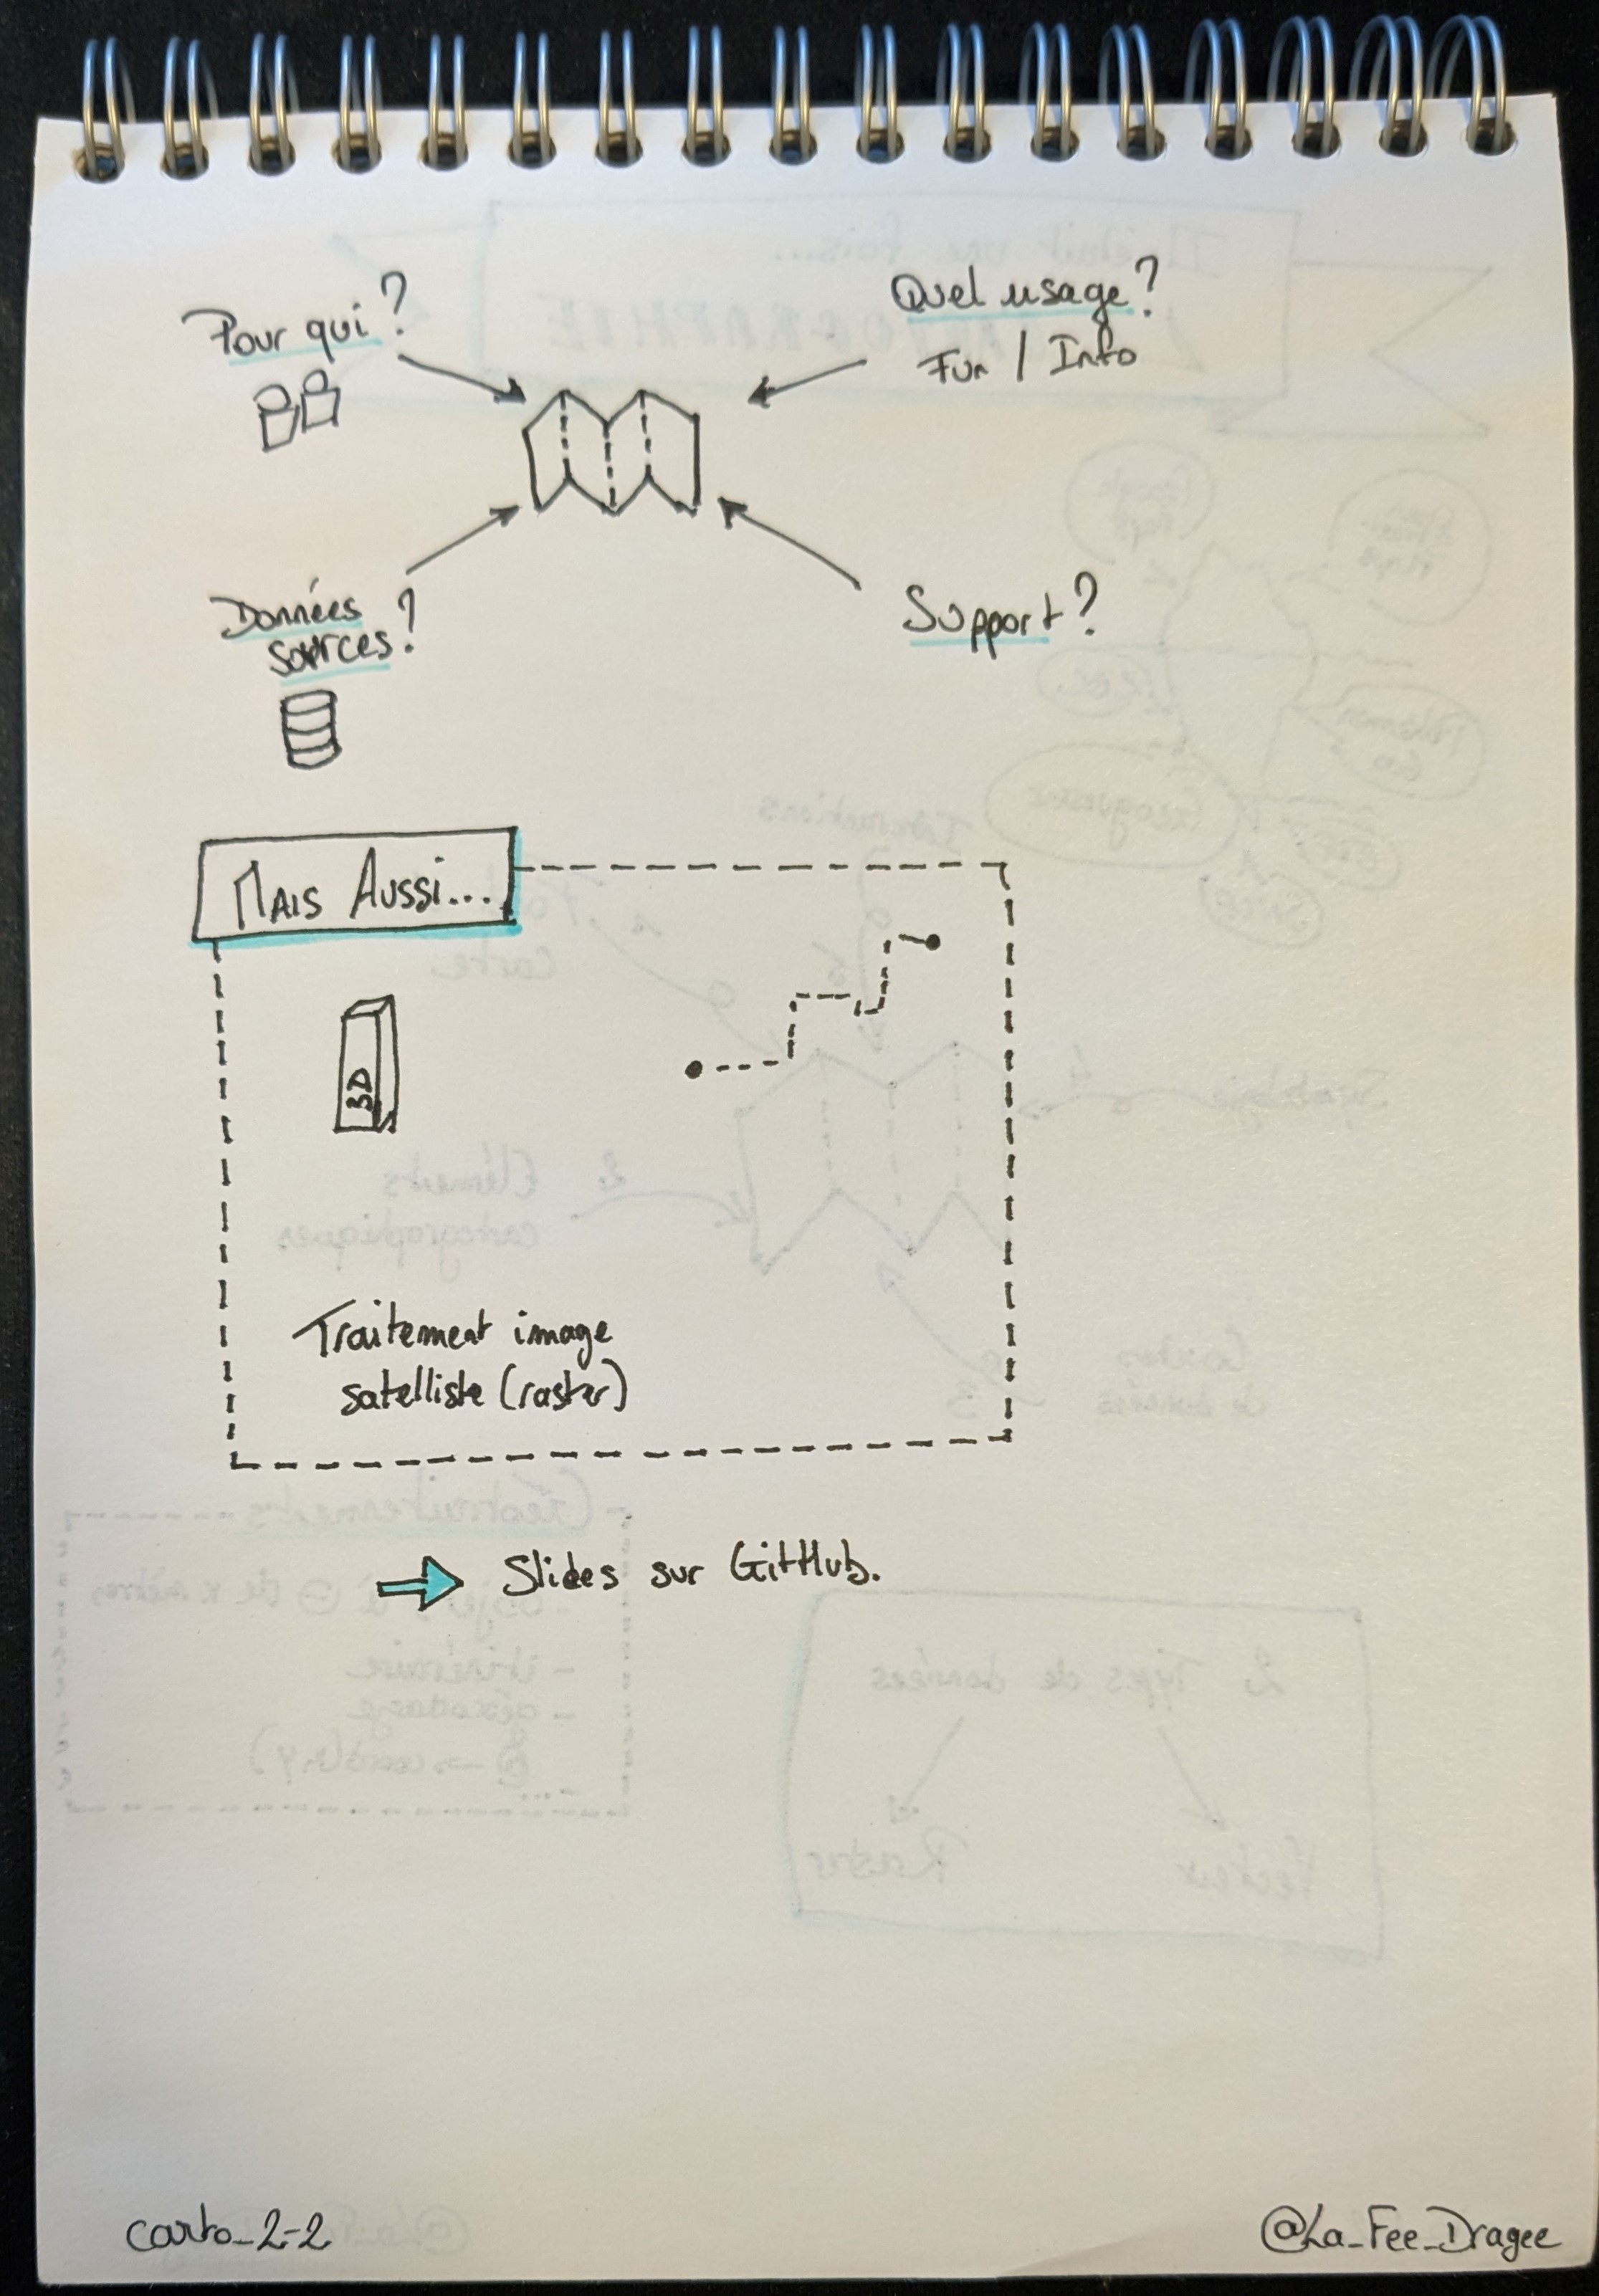 Pour qui ?
Quel usage ?
Fun / Info
Données
sources ?
Support ?
MAIS AUSSI...
3D
Traitement image
satelliste (raster)
Slides sur GitHub.
carto_2-2
@La_Fee_Dragee